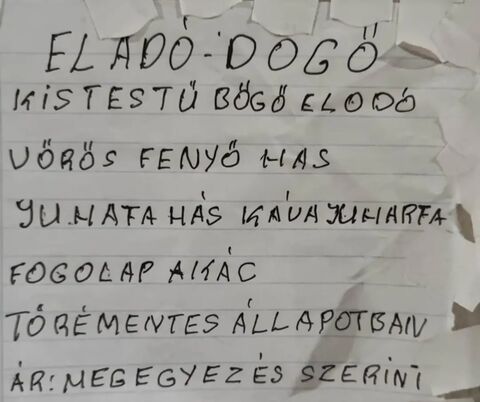 ELADÓ-DOGŐ
KISTESTŰ BŐGŐ ELODÓ
VŐRŐS FENYŐ HAS
YU.HAFA HÁS KÁVA YUHARFA
FOGOLAP AKÁC
TŐRÉMENTES ÁLLAPOTBAN
ÁR: MEGEGYEZÉS SZERINT